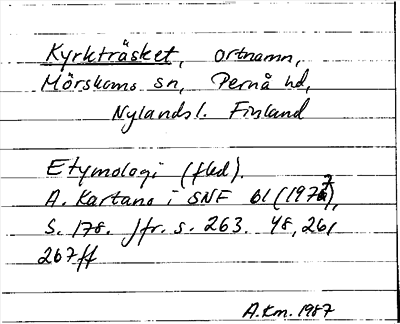 Kyrkträsket, ortnamn,
Mörskoms sn, Pernå hd,
Nylands l. Finland
Etymologi (fled).
A. Kartano i SNF 61 (1977),
s. 178. Jfr. s. 263. 48, 261
267 ff
A.Km. 1987